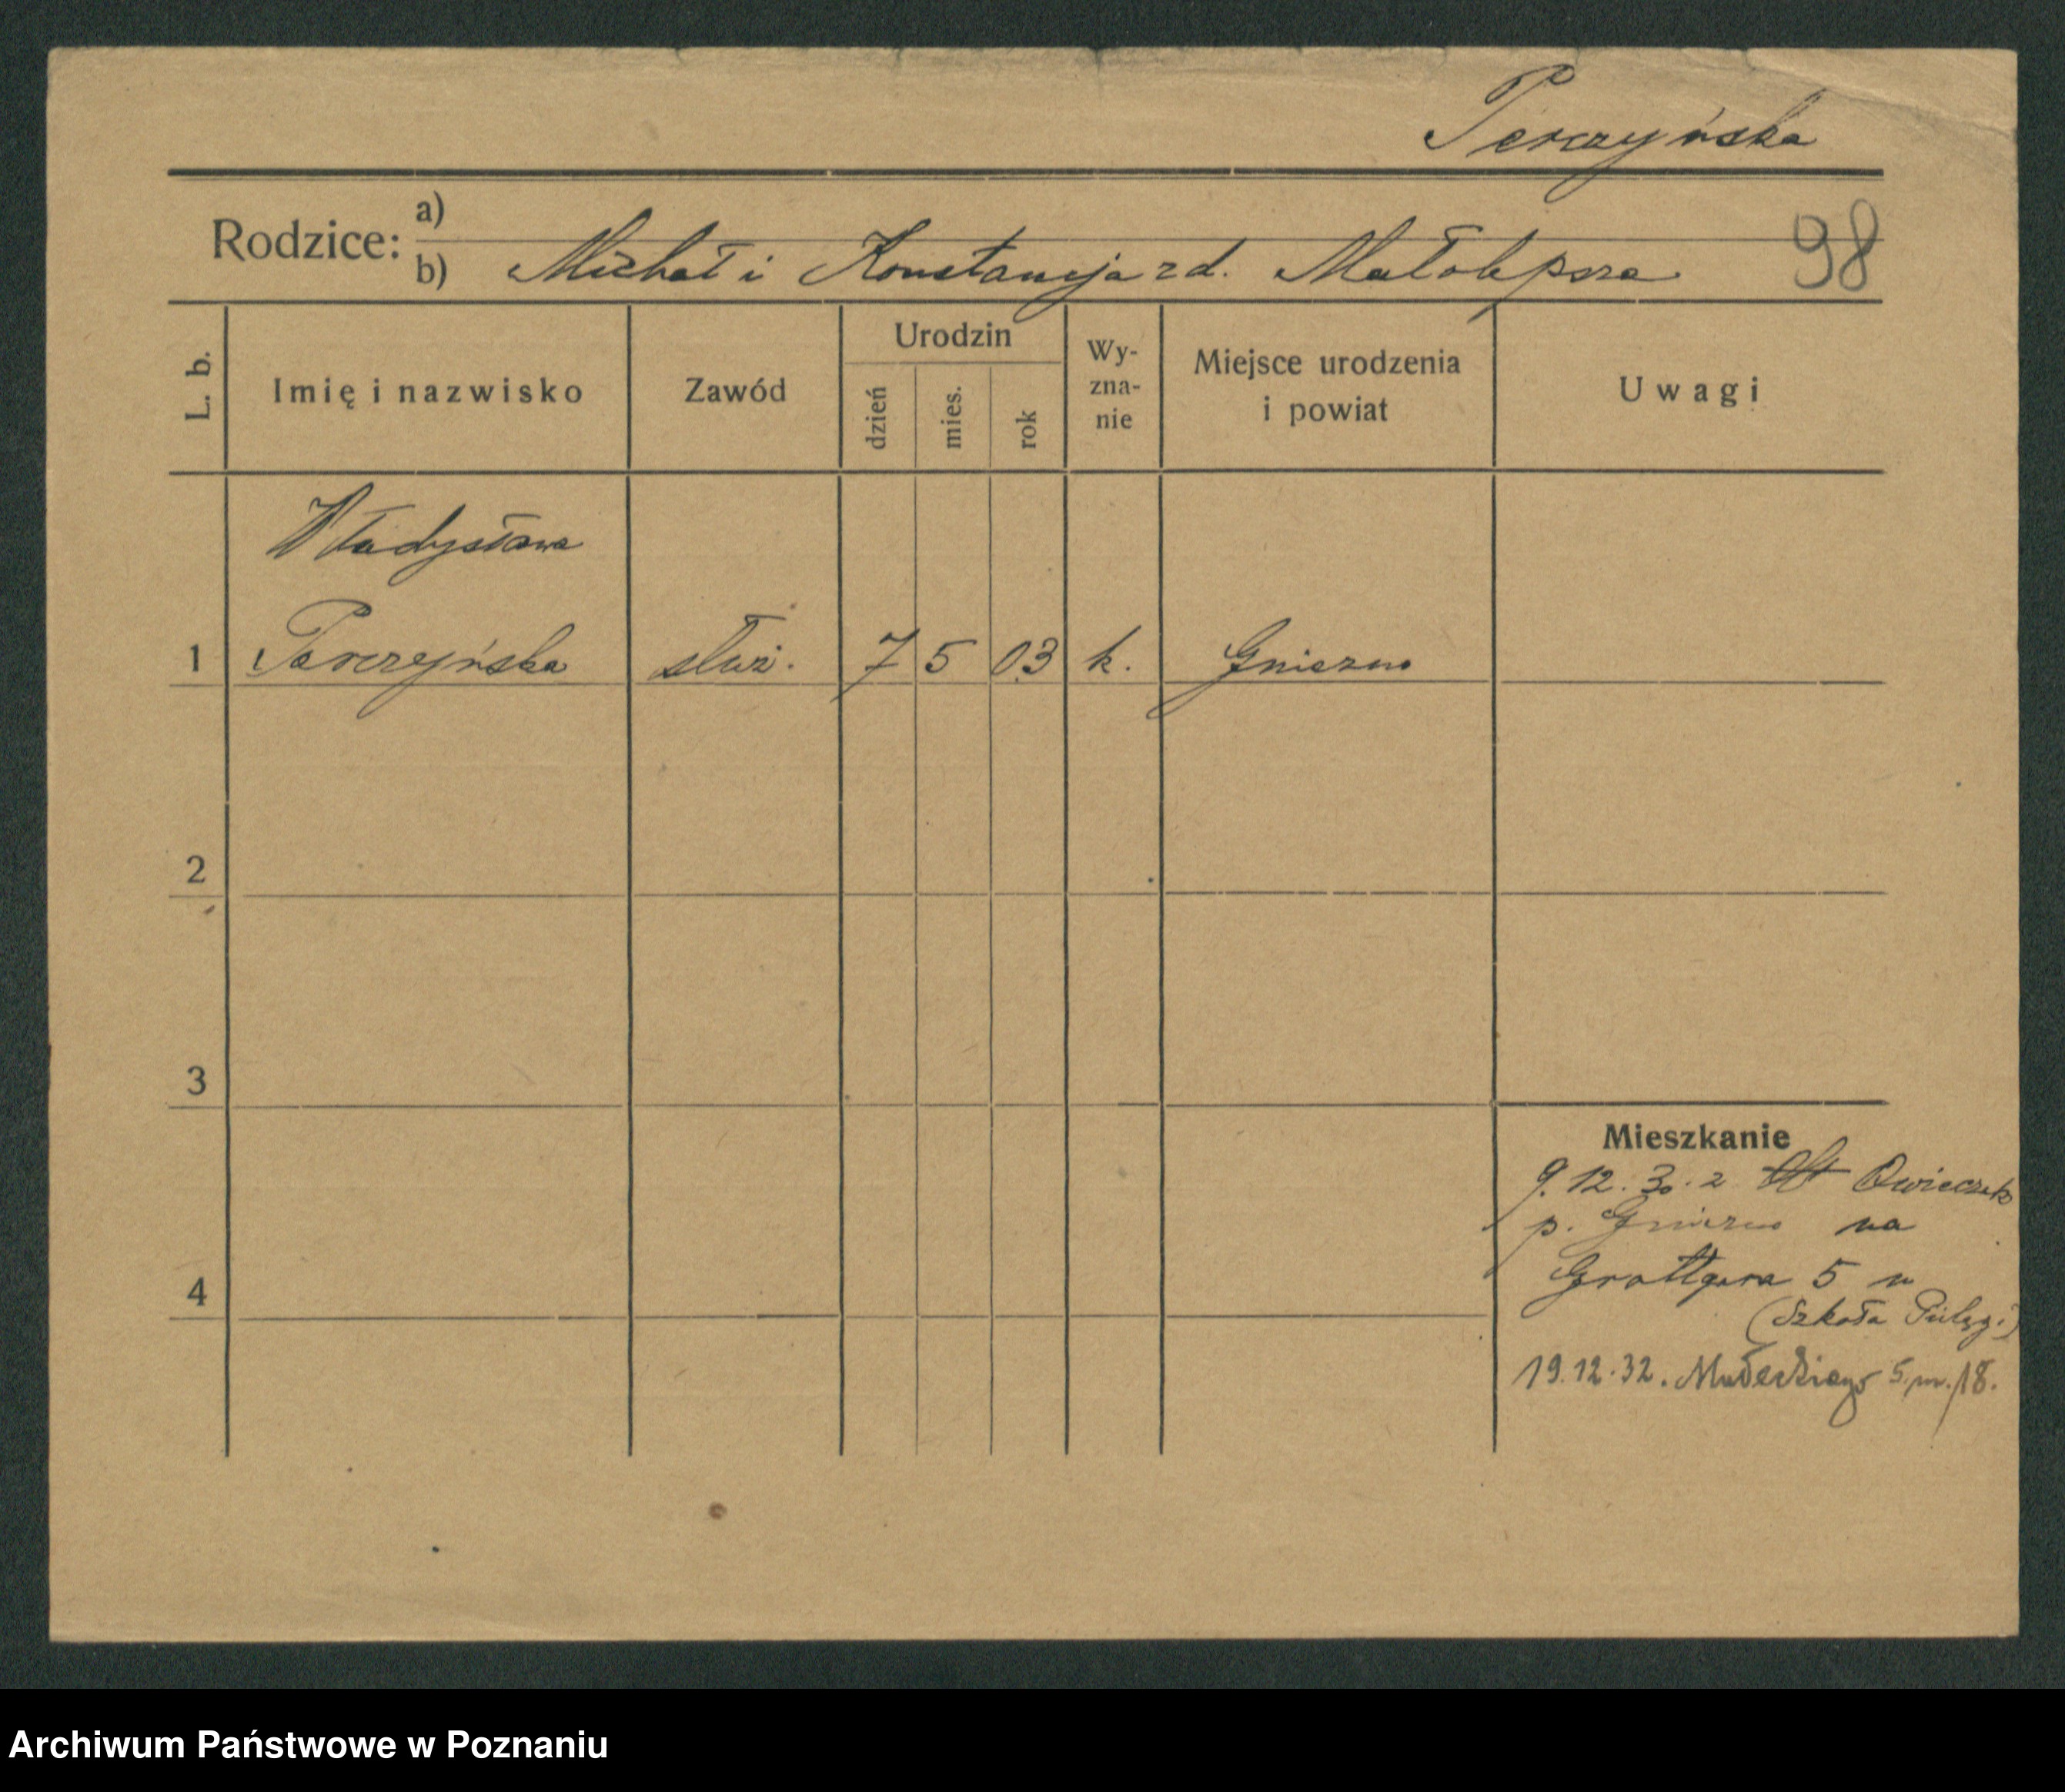 Perczyńska
Rodzice: a)
b) Michał i Konstancja zd. Małolepsza
98
L. b.
Imię i nazwisko
Zawód
Urodzin
dzień
mies.
rok
Wy-
zna-
nie
Miejsce urodzenia
i powiat
Uwagi
Władysława
1 Perczyńska służ. 7 5 03 k. Gniezno
2
3
4
Mieszkanie
9.12.30. z Owieczek
p. Gniezno na
Grottgera 5
(Szkoła Pielęg.)
19.12.32. Małeckiego 5. m. 18.
Archiwum Państwowe w Poznaniu